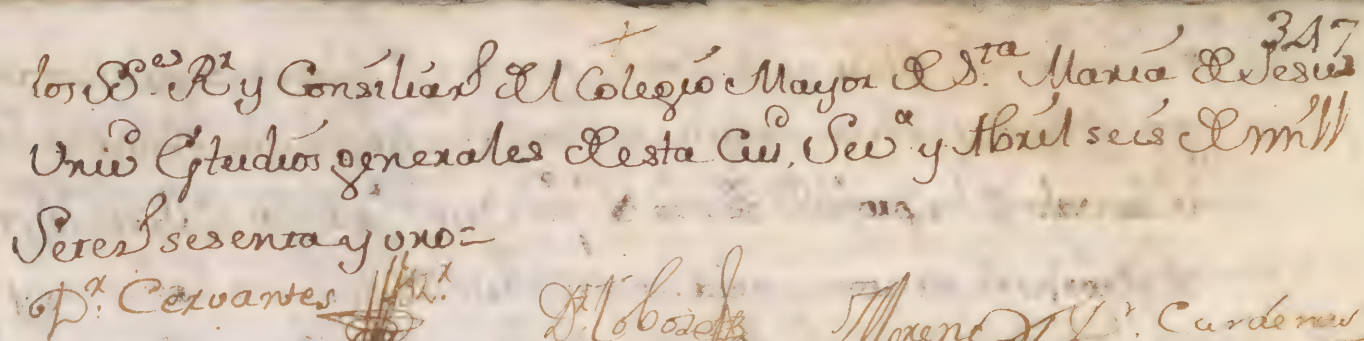 347
los SS.es R.r y Consiliar.s del Colegio Mayor de S.ta Maria de Jesus
Univ.d Estudios generales desta Ciu.d, Sev.a y Abril seis de mill
Setez.s sesenta y uno=
D.r Cervantes R.r D.r Lobo Moreno D.r Cardenas